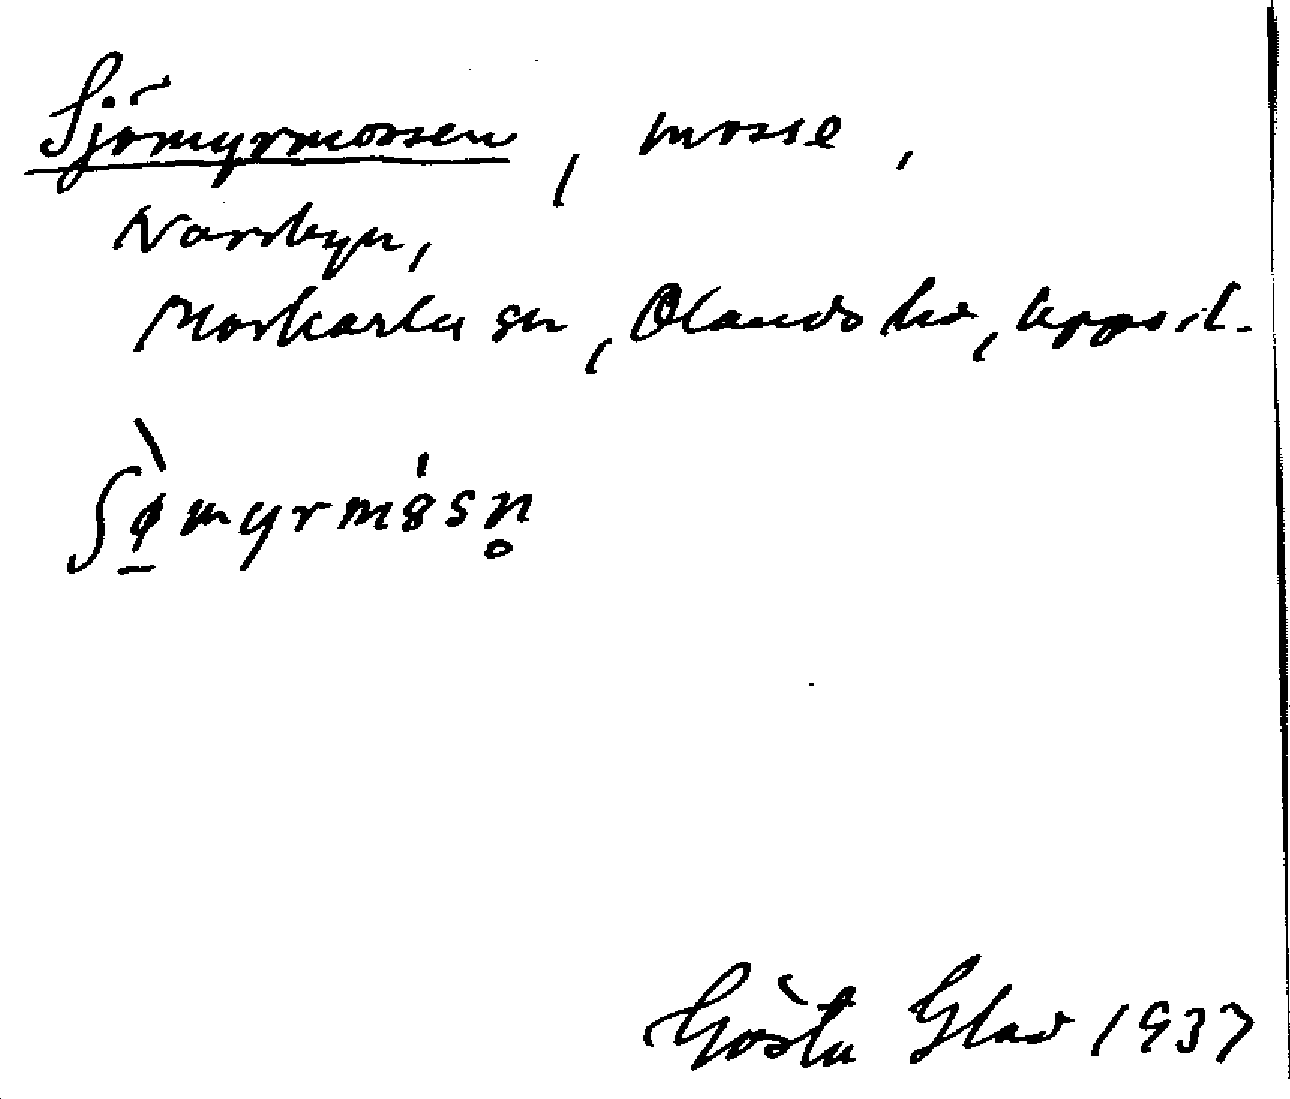 Sjömyrmossen, mosse,
Norrbyn,
Morkarla sn, Olands hd, Uppsl.
ʃø̠̀myrmòsn̥
Gösta Glad 1937